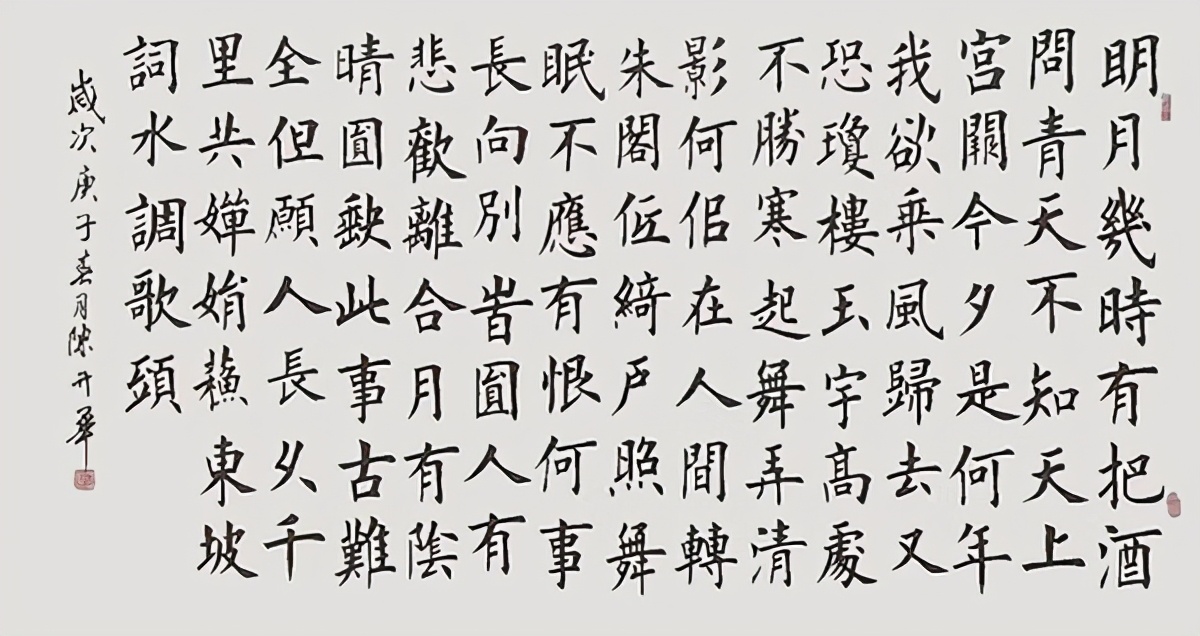 明月幾時有把酒
問青天不知天上
宮闕今夕是何年
我欲乘風歸去又
恐瓊樓玉宇高處
不勝寒起舞弄清
影何佀在人間轉
朱閣仾綺戶照舞
眠不應有恨何事
長向別旹圓人有
悲歡離合月有陰
晴圓缺此事古難
全但願人長久千
里共嬋娟蘇東坡
詞水調歌頭
歲次庚子春月陳开華